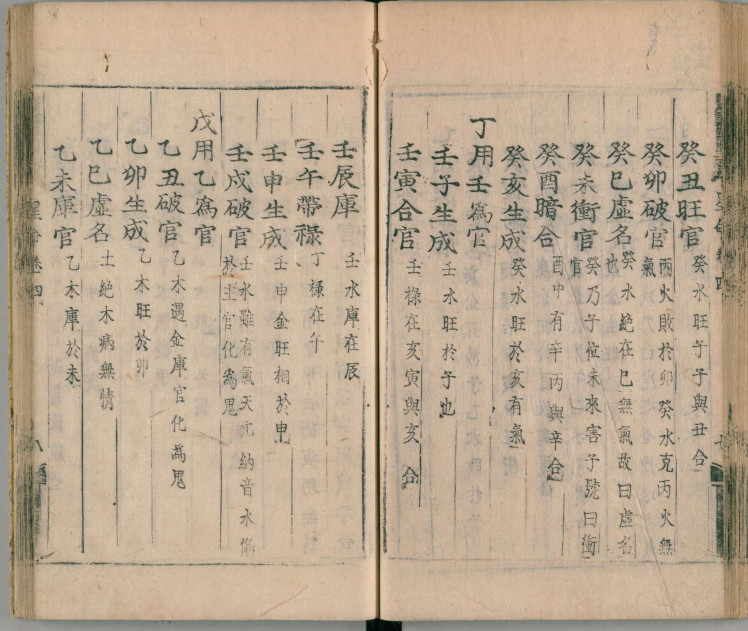 癸丑旺官 癸水旺于子與丑合
癸卯破官 丙火敗於卯癸水克丙火無氣
癸巳虛名 癸水絕在巳無氣故曰虛名也
癸未衝官 癸乃子位未來害子號曰衝官
癸酉暗合 酉中有辛丙與辛合
癸亥生成 癸水旺於亥有氣
丁用壬爲官
壬子生成 壬水旺於子也
壬寅合官 壬祿在亥寅與亥合
壬辰庫 壬水庫在辰
壬午帶祿 丁祿在午
壬申生成 壬申金旺相於申
壬戌破官 壬水雖有氣天元納音水傷於土官化為鬼
戊用乙爲官
乙丑破官 乙木遇金庫官化為鬼
乙卯生成 乙木旺於卯
乙巳虛名 土絕木病無情
乙未庫官 乙木庫於未
卷四
八